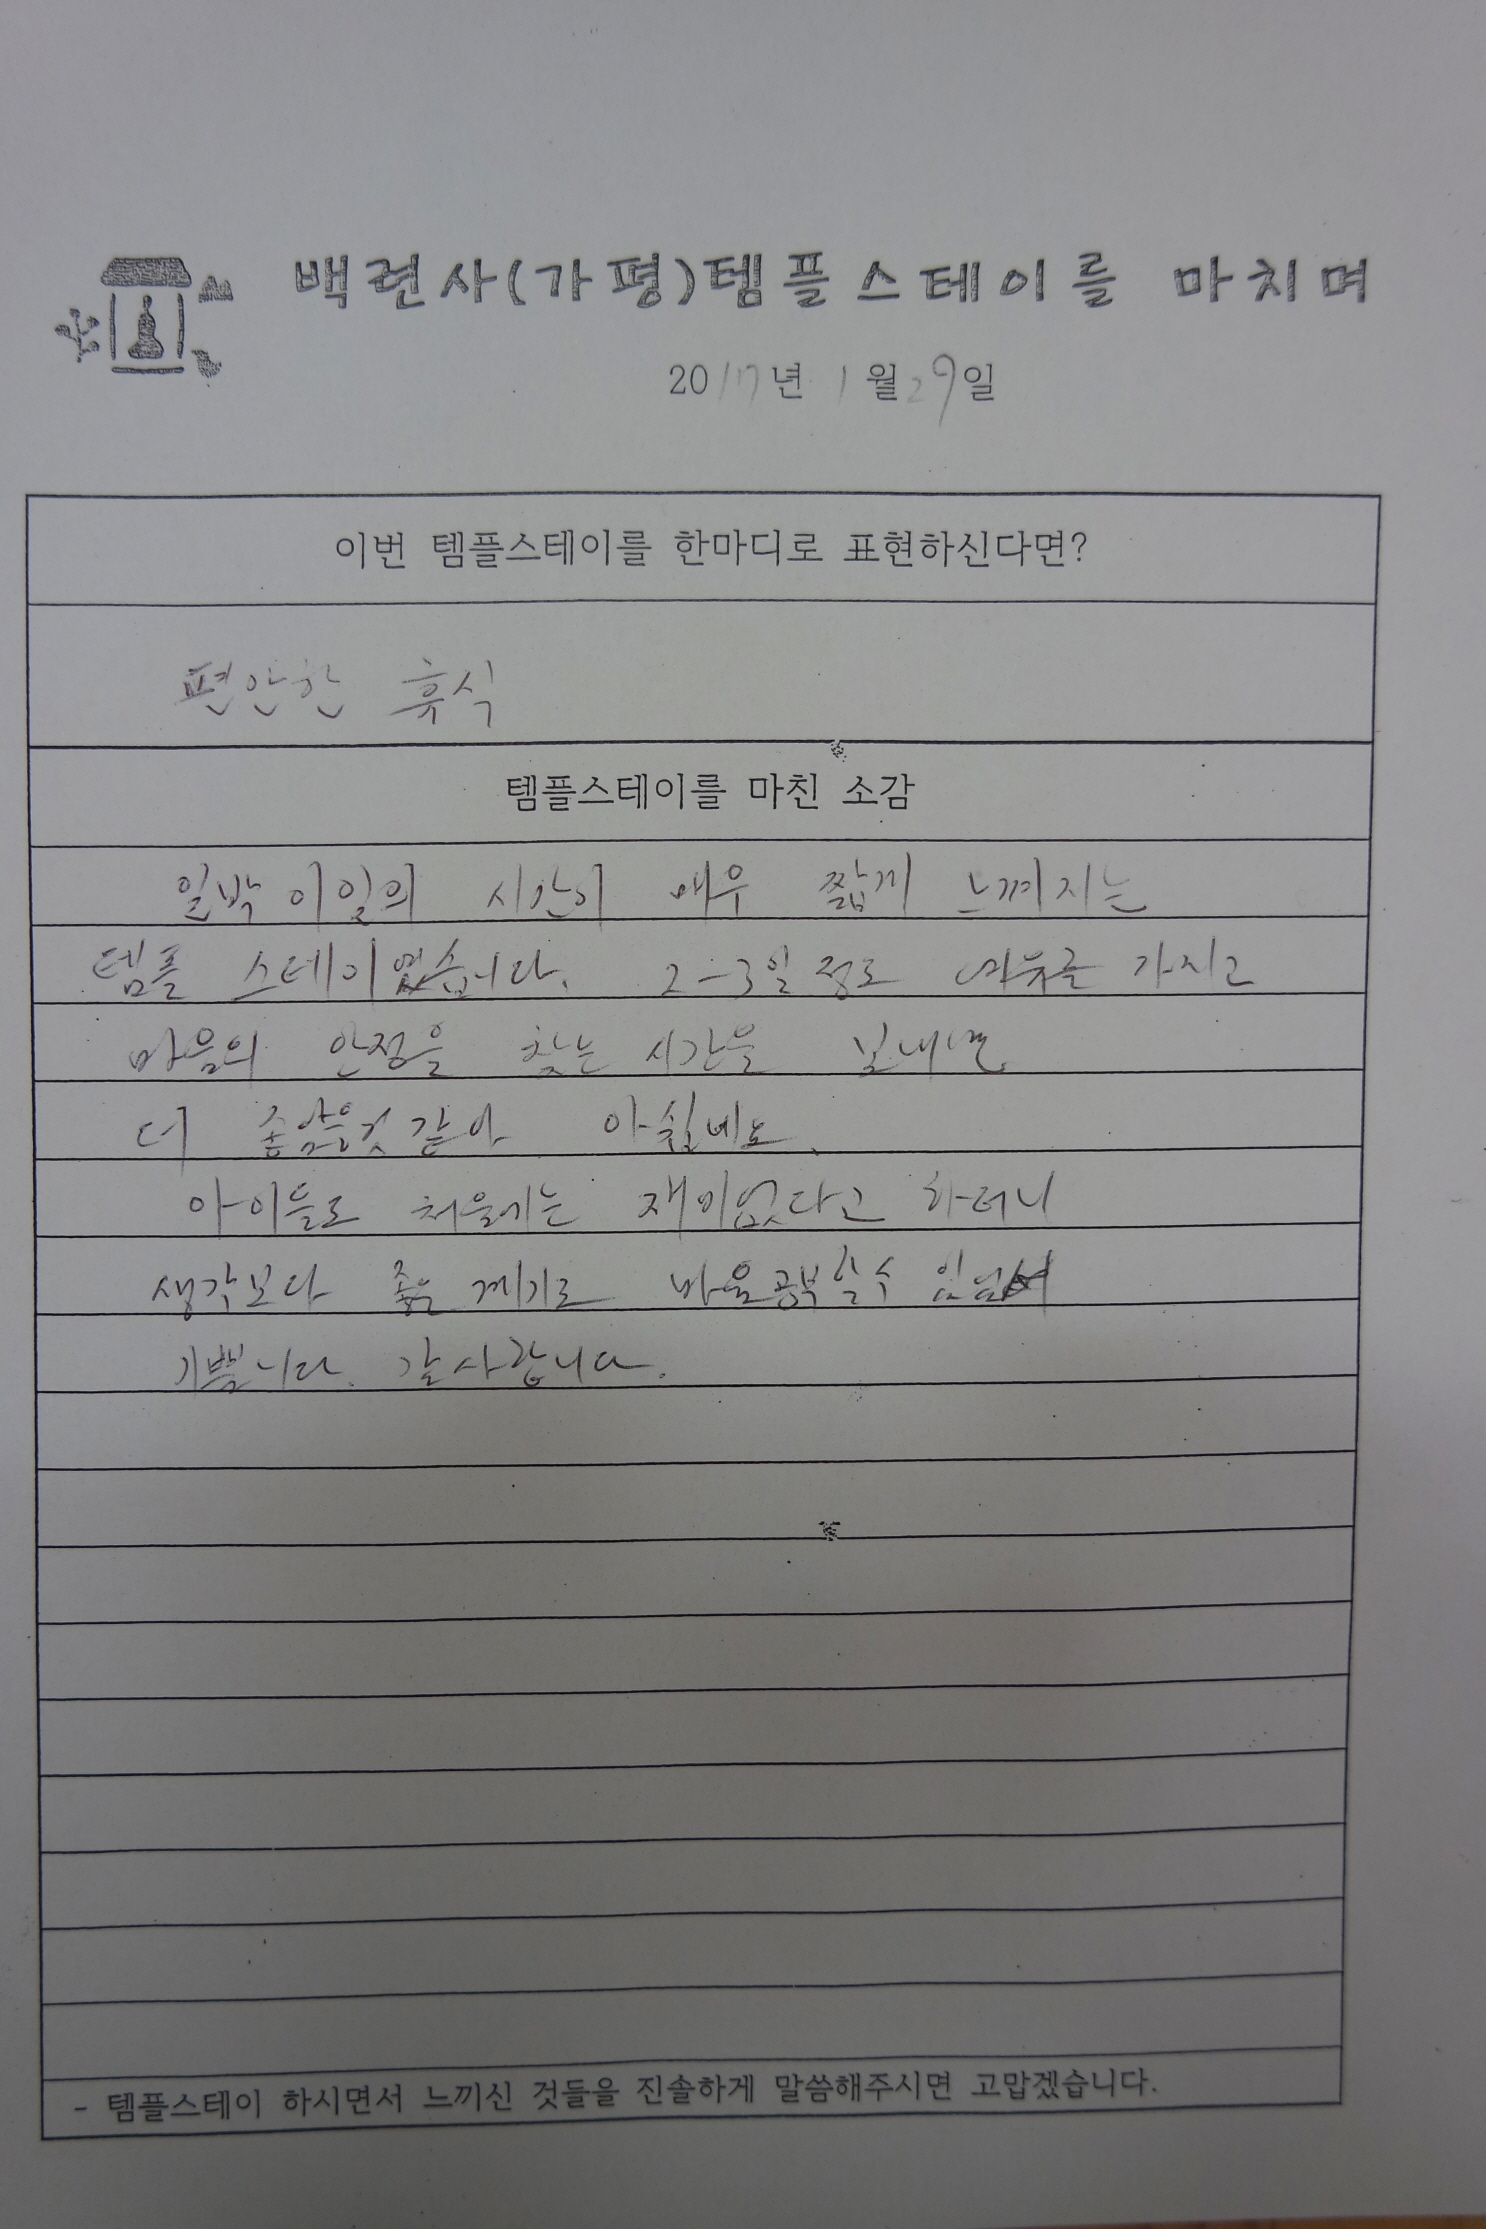 백련사(가평)템플스테이를 마치며
2017년 1월 29일
이번 템플스테이를 한마디로 표현하신다면?
편안한 휴식
템플스테이를 마친 소감
일박 이일의 시간이 매우 짧게 느껴지는
템플 스테이였습니다. 2-3일 정도 여유를 가지고
마음의 안정을 찾는 시간을 보내면
더 좋았을것 같아 아쉽네요.
아이들도 처음에는 재미없다고 하더니
생각보다 좋은 계기로 마음공부할수 있넜어
기쁩니다. 감사합니다.
- 템플스테이 하시면서 느끼신 것들을 진솔하게 말씀해주시면 고맙겠습니다.